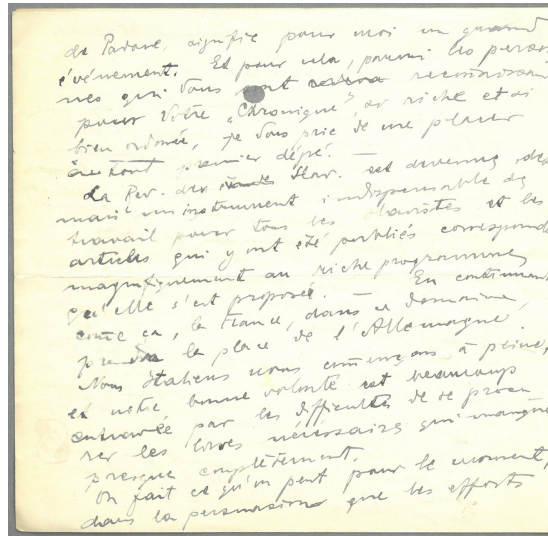 de Padoue, signifie pour moi un grand
événement. Et pour cela, parmi les person
nes qui Vous sont reconnaissan
pour Votre „Chronique” si riche et si
bien ordonée, je Vous prie de me placer
au tout premier dégré.
La Rev. des Slav. est devenue, dés-
mais un instrument indispensable de
travail pour tous les slavistes et les
articles qui y ont été publiés correspondent
magnifiquement au riche programme
qu'elle s'est proposée. — En continuant
comme ça, la France, dans ce domaine,
prendra la place de l'Allemagne.
Nous Italiens nous commençons à peine,
et notre bonne volonté est beaucoup
entravée par les difficultés de se procu
rer les livres nécessaires qui manquent
presque complètement.
On fait ce qu'on peut pour le moment,
dans la persuasion que les efforts